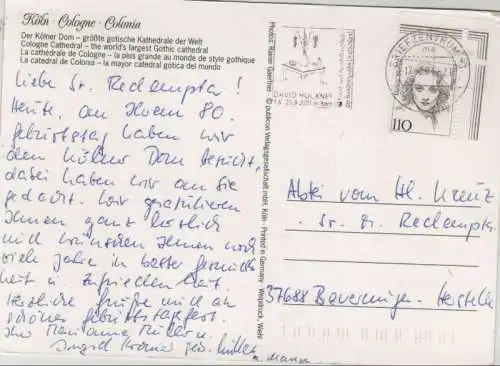 Köln · Cologne · Colonia
Der Kölner Dom – größte gotische Kathedrale der Welt
Cologne Cathedral – the world's largest Gothic cathedral
La cathédrale de Cologne – la plus grande au monde de style gothique
La catedral de Colonia – la mayor catedral gótica del mundo
Liebe Sr. Redempta!
Heute, an Ihrem 80.
Geburtstag haben wir
den Kölner Dom besucht,
dabei haben wir an Sie
gedacht. Wir gratulieren
Ihnen ganz herzlich
und wünschen Ihnen noch
viele Jahre in bester Gesund-
heit u. Zufriedenheit.
Herzliche Grüße und ein
schönes Geburtstagsfest.
Ihre Marianne Müller u.
Ingrid Kramer geb. Müller
Photos: Rainer Gaertner © publicon Verlagsgesellschaft mbH, Köln · Printed in Germany · Weiss­druck, Wiehl
DAVID HOCKNEY
BRIEFZENTRUM
110
Abtei vom Hl. Kreuz
Sr. Redempta
37688 Beverungen - Herstelle